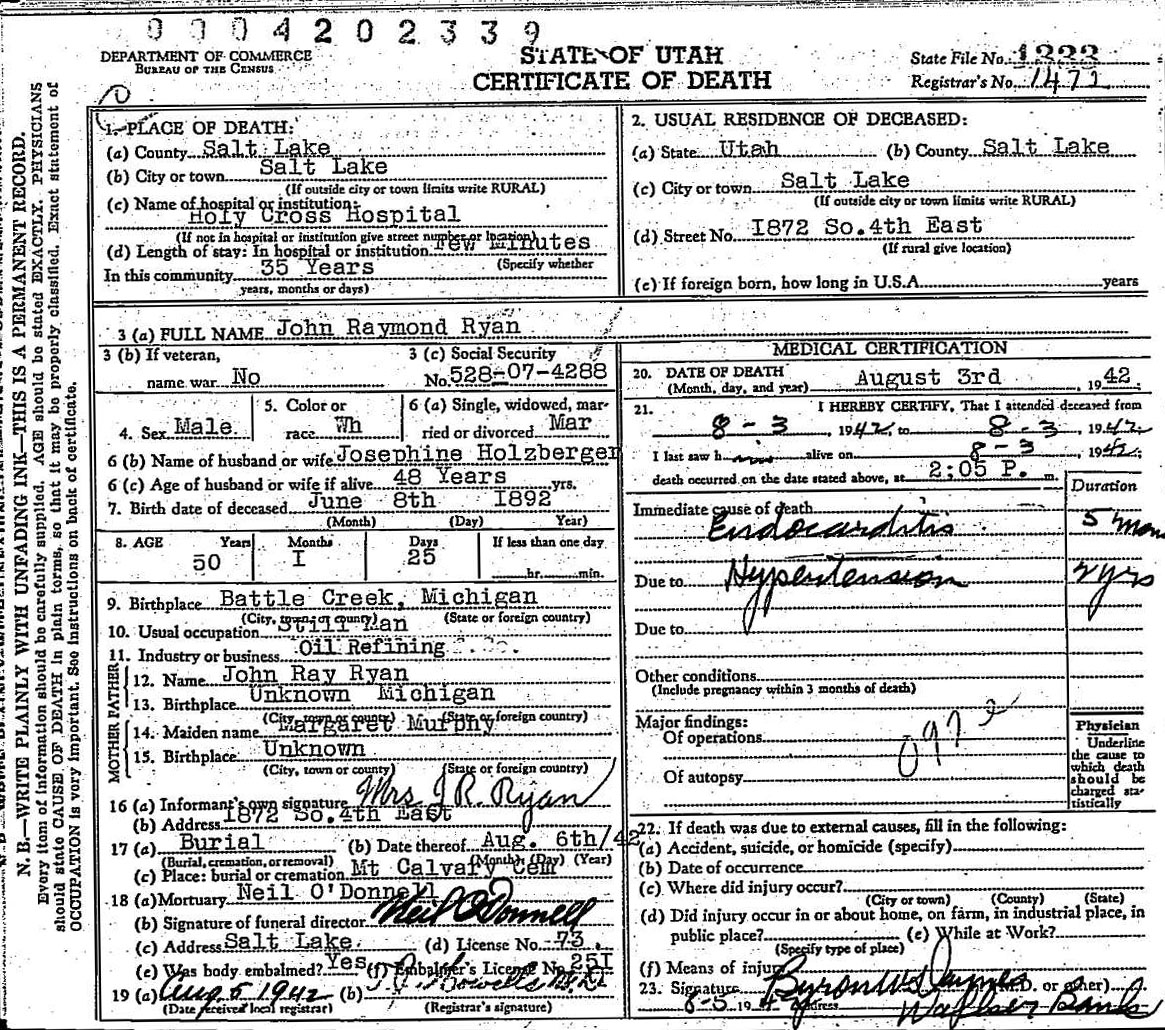 0004202339
DEPARTMENT OF COMMERCE
BUREAU OF THE CENSUS
STATE OF UTAH
CERTIFICATE OF DEATH
State File No. 1333
Registrar's No. 1471
N. B.—WRITE PLAINLY WITH UNFADING INK—THIS IS A PERMANENT RECORD.
Every item of information should be carefully supplied. AGE should be stated EXACTLY. PHYSICIANS
should state CAUSE OF DEATH in plain terms, so that it may be properly classified. Exact statement of
OCCUPATION is very important. See instructions on back of certificate.
1. PLACE OF DEATH:
(a) County Salt Lake
(b) City or town Salt Lake
(If outside city or town limits write RURAL)
(c) Name of hospital or institution:
Holy Cross Hospital
(If not in hospital or institution give street number or location)
(d) Length of stay: In hospital or institution Few Minutes
(Specify whether
In this community 35 Years
years, months or days)
2. USUAL RESIDENCE OF DECEASED:
(a) State Utah (b) County Salt Lake
(c) City or town Salt Lake
(If outside city or town limits write RURAL)
(d) Street No. I872 So.4th East
(If rural give location)
(e) If foreign born, how long in U.S.A. years
3 (a) FULL NAME John Raymond Ryan
3 (b) If veteran, name war No
3 (c) Social Security No. 528-07-4288
4. Sex Male
5. Color or race Wh
6 (a) Single, widowed, married or divorced Mar
6 (b) Name of husband or wife Josephine Holzberger
6 (c) Age of husband or wife if alive 48 Years yrs.
7. Birth date of deceased June 8th I892
(Month) (Day) Year)
8. AGE Years Months Days If less than one day
50 I 25 hr. min.
9. Birthplace Battle Creek, Michigan
(City, town or county) (State or foreign country)
10. Usual occupation Still Man
11. Industry or business Oil Refining
FATHER
12. Name John Ray Ryan
13. Birthplace Unknown Michigan
(City, town or county) (State or foreign country)
MOTHER
14. Maiden name Margaret Murphy
15. Birthplace Unknown
(City, town or county) (State or foreign country)
16 (a) Informant's own signature Mrs J R. Ryan
(b) Address 1872 So.4th East
17 (a) Burial (b) Date thereof Aug. 6th/42
(Burial, cremation, or removal) (Month) (Day) (Year)
(c) Place: burial or cremation Mt Calvary Cem
18 (a) Mortuary Neil O'Donnell
(b) Signature of funeral director Neil O'Donnell
(c) Address Salt Lake (d) License No. 73
(e) Was body embalmed? Yes (f) Embalmer's License No. 25I
19 (a) Aug 5 1942 (b)
(Date received local registrar) (Registrar's signature)
MEDICAL CERTIFICATION
20. DATE OF DEATH August 3rd, 1942
(Month, day, and year)
21. I HEREBY CERTIFY, That I attended deceased from
8-3 1942, to 8-3, 1942.
I last saw him alive on 8-3, 1942,
death occurred on the date stated above, at 2:05 P. m.
Duration
Immediate cause of death
Endocarditis 5 mon
Due to Hypertension 2 yrs
Due to
Other conditions
(Include pregnancy within 3 months of death)
Major findings:
Of operations
Of autopsy
Physician
Underline
the cause to
which death
should be
charged sta-
tistically
22. If death was due to external causes, fill in the following:
(a) Accident, suicide, or homicide (specify)
(b) Date of occurrence
(c) Where did injury occur?
(City or town) (County) (State)
(d) Did injury occur in or about home, on farm, in industrial place, in
public place? (e) While at Work?
(Specify type of place)
(f) Means of injury
23. Signature Byron W Daynes (M.D. or other)
8-5 1942 Address